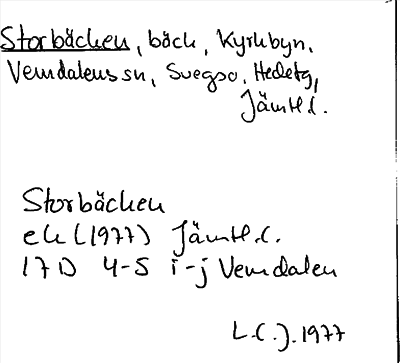 Storbäcken, bäck, Kyrkbyn,
Vemdalens sn, Svegso, Hedetg,
Jämtl l.
Storbäcken
ek (1977) Jämtl. l.
17D 4-5 i-j Vemdalen
L.C.J. 1977